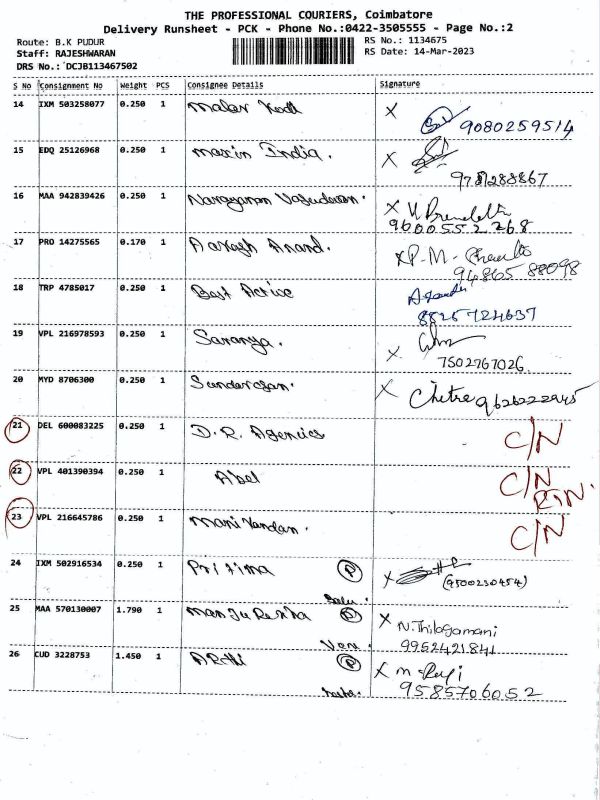 THE PROFESSIONAL COURIERS, Coimbatore
Delivery Runsheet - PCK - Phone No.:0422-3505555 - Page No.:2
Route: B.K PUDUR
RS No.: 1134675
Staff: RAJESHWARAN
RS Date: 14-Mar-2023
DRS No.: DCJB113467502
S No Consignment No Weight PCS Consignee Details Signature
14 IXM 503258077 0.250 1 Malar
9080259514
15 EDQ 25126968 0.250 1 Maxin India.
9787288867
16 MAA 942839426 0.250 1 Narayanan Vasudevan. X
9600552268
17 PRO 14275565 0.170 1 Aakash Anand. X P. M.
94865 88098
18 TRP 4785017 0.250 1 Best Active
8825724637
19 VPL 216978593 0.250 1 Saranya. X
7502767026
20 MYD 8706300 0.250 1 Sundaresan. X Chitra 9626222945
21 DEL 600083225 0.250 1 D.R. Agencies C/N
22 VPL 401390394 0.250 1 Abel C/N
RTN.
23 VPL 216645786 0.250 1 Mani Vandan. C/N
24 IXM 502916534 0.250 1 Pritima P X
(9500230454)
25 MAA 570130007 1.790 1 Manju Rekha P X N. Thilagamani
9952421841
26 CUD 3228753 1.450 1 ARthi P X M
9585706052